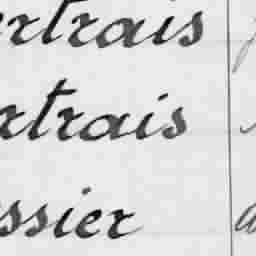 ertrais
rtrais
ssier